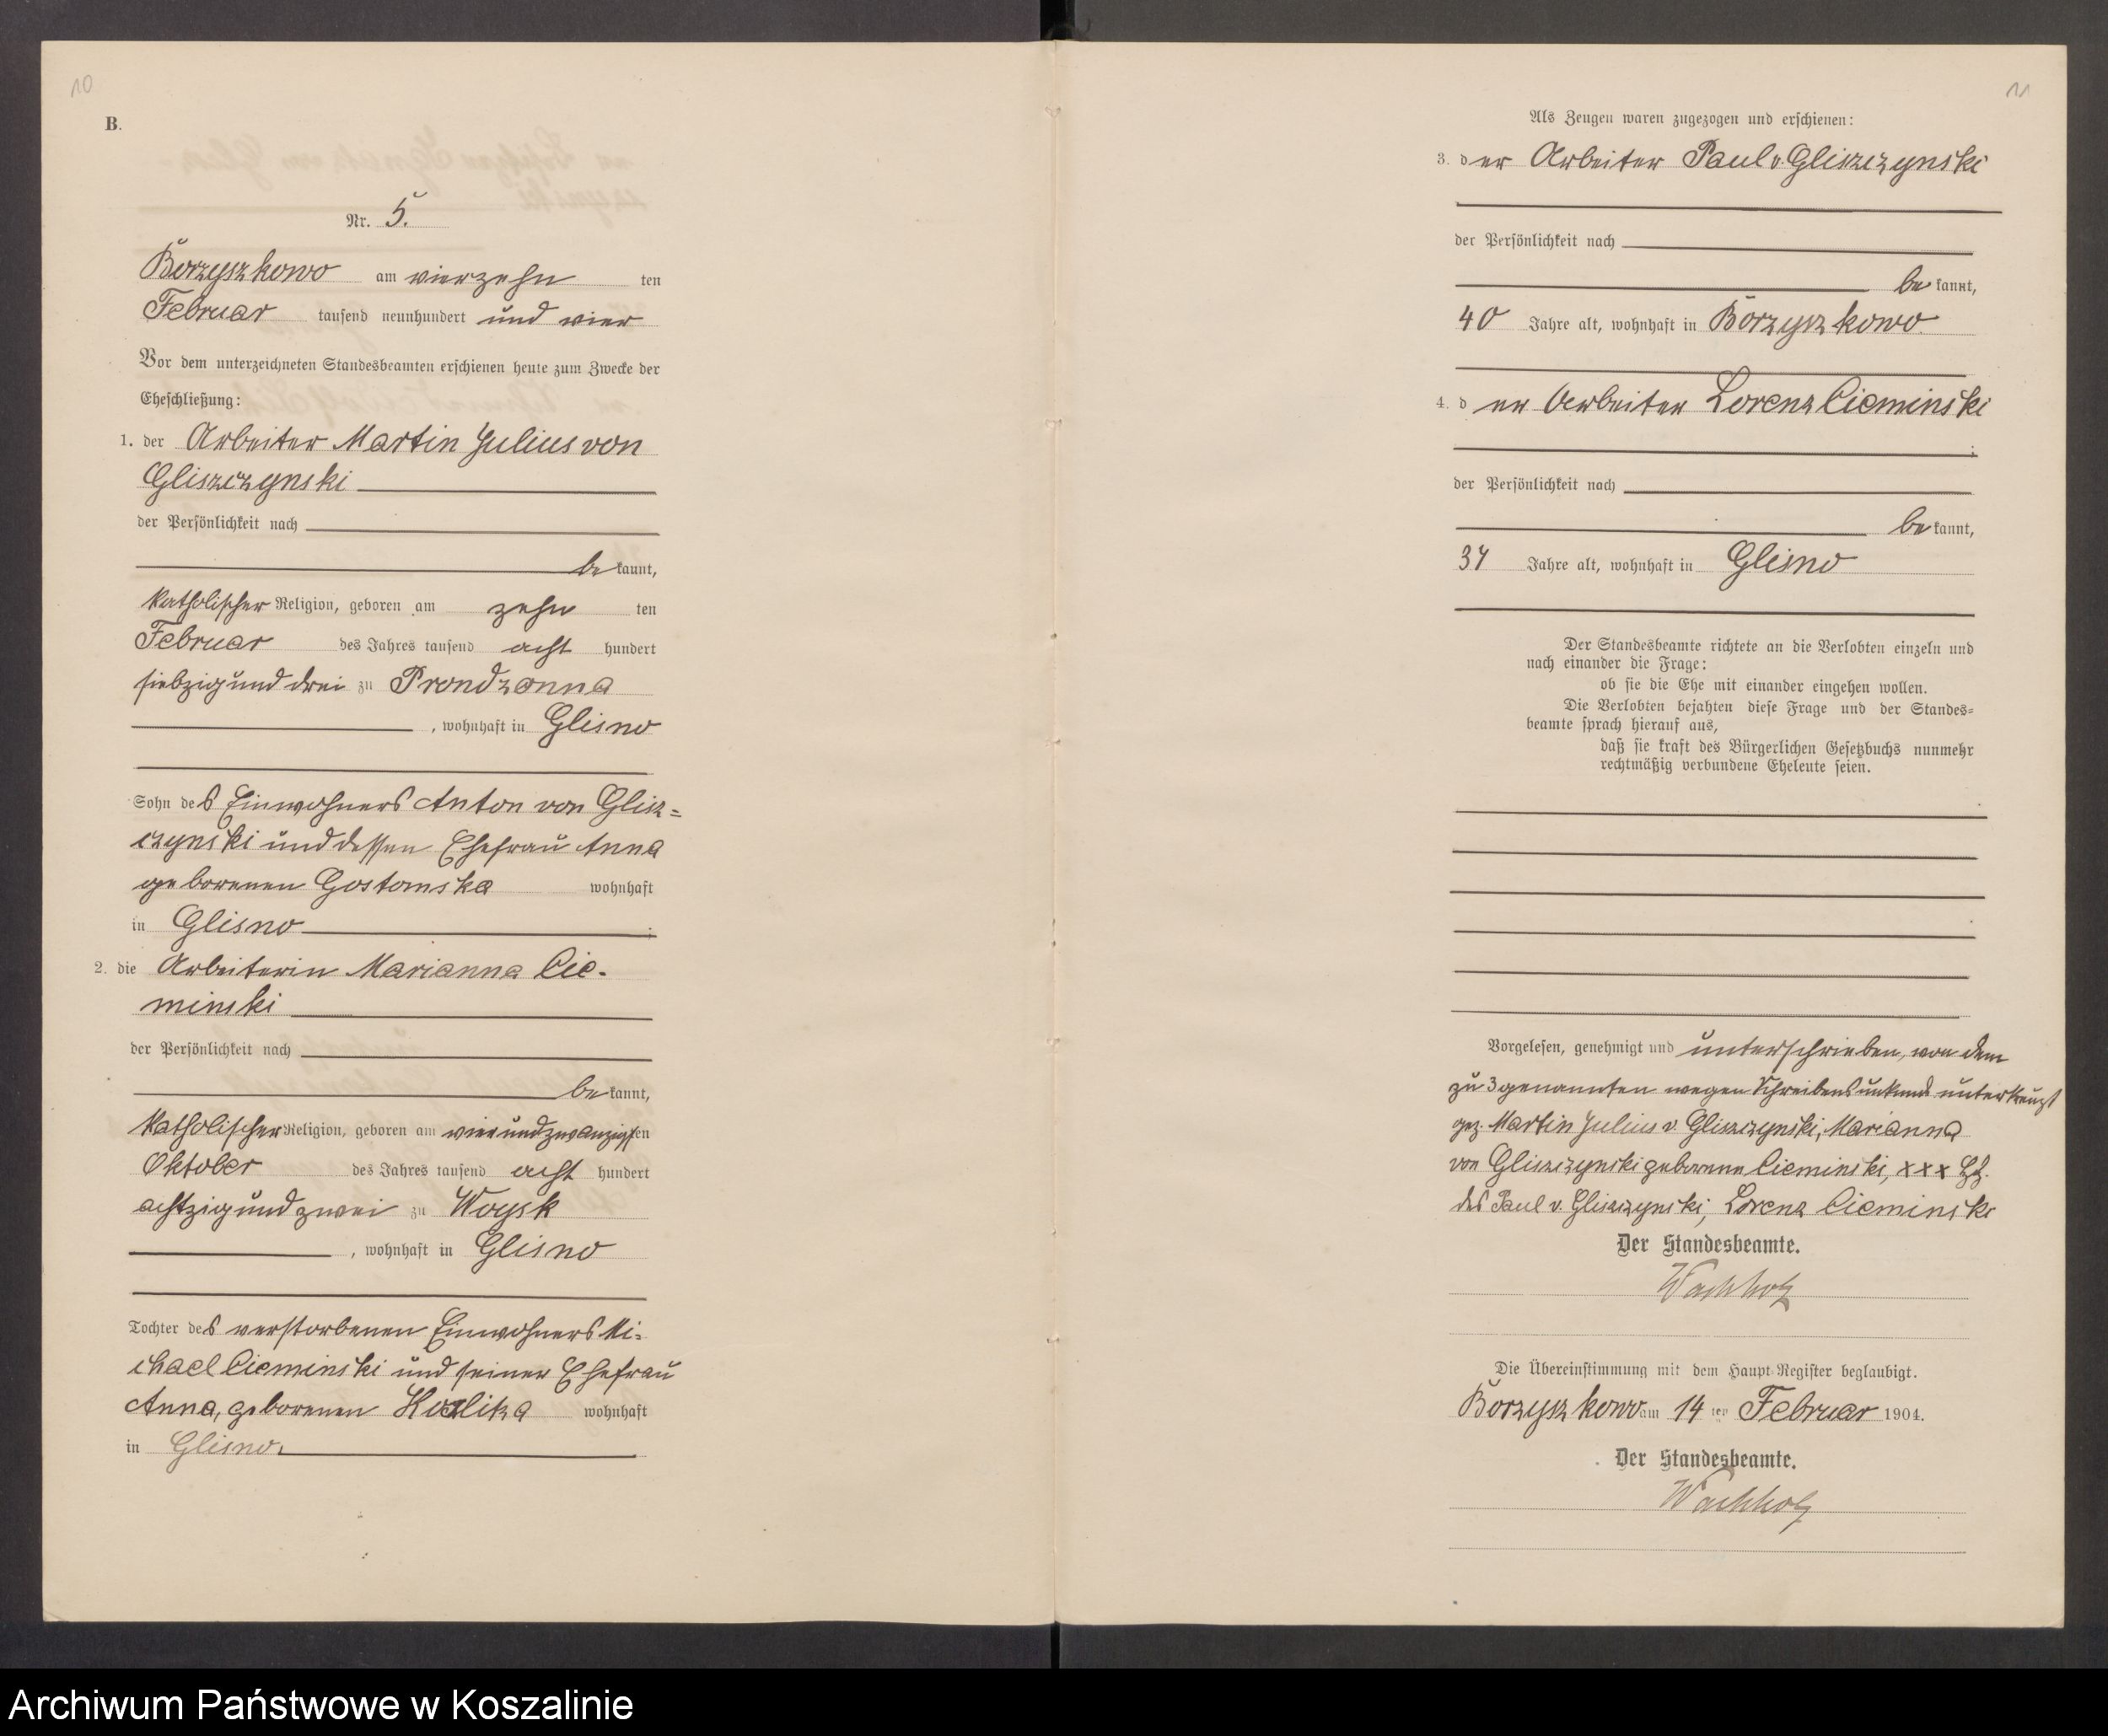 10
B.
Nr. 5.
Borzyszkowo am vierzehn ten
Februar tausend neunhundert und vier
Vor dem unterzeichneten Standesbeamten erschienen heute zum Zwecke der
Eheschließung:
1. der Arbeiter Martin Julius von
Gliszczynski
der Persönlichkeit nach
be kannt,
katholischer Religion, geboren am zehn ten
Februar des Jahres tausend acht hundert
siebzig und drei zu Prondzonna
, wohnhaft in Glisno
Sohn des Einwohners Anton von Glisz=
czynski und dessen Ehefrau Anna
geborenen Gostomska wohnhaft
in Glisno
2. die Arbeiterin Marianna Cie-
minski
der Persönlichkeit nach
be kannt,
katholischer Religion, geboren am vierundzwanzigsten
Oktober des Jahres tausend acht hundert
achtzig und zwei zu Woysk
, wohnhaft in Glisno
Tochter des verstorbenen Einwohners Mi-
chael Cieminski und seiner Ehefrau
Anna, geborenen wohnhaft
in Glisno.
11
Als Zeugen waren zugezogen und erschienen:
3. der Arbeiter Paul v. Gliszczynski
der Persönlichkeit nach
be kannt,
40 Jahre alt, wohnhaft in Borzyszkowo
4. der Arbeiter Lorenz Cieminski
;
der Persönlichkeit nach
be kannt,
37 Jahre alt, wohnhaft in Glisno
Der Standesbeamte richtete an die Verlobten einzeln und
nach einander die Frage:
ob sie die Ehe mit einander eingehen wollen.
Die Verlobten bejahten diese Frage und der Standes=
beamte sprach hierauf aus,
daß sie kraft des Bürgerlichen Gesetzbuchs nunmehr
rechtmäßig verbundene Eheleute seien.
Vorgelesen, genehmigt und unterschrieben, von dem
zu 3 genannten wegen Schreibensunkunde unterkreuzt
gez. Martin Julius v. Gliszczynski, Marianna
von Gliszczynski geborene Cieminski, xxx Hz.
des Paul v. Gliszczynski, Lorenz Cieminski
Der Standesbeamte.
Wachholz
Die Übereinstimmung mit dem Haupt-Register beglaubigt.
Borzyszkowo am 14 ten Februar 1904.
Der Standesbeamte.
Wachholz
Archiwum Państwowe w Koszalinie